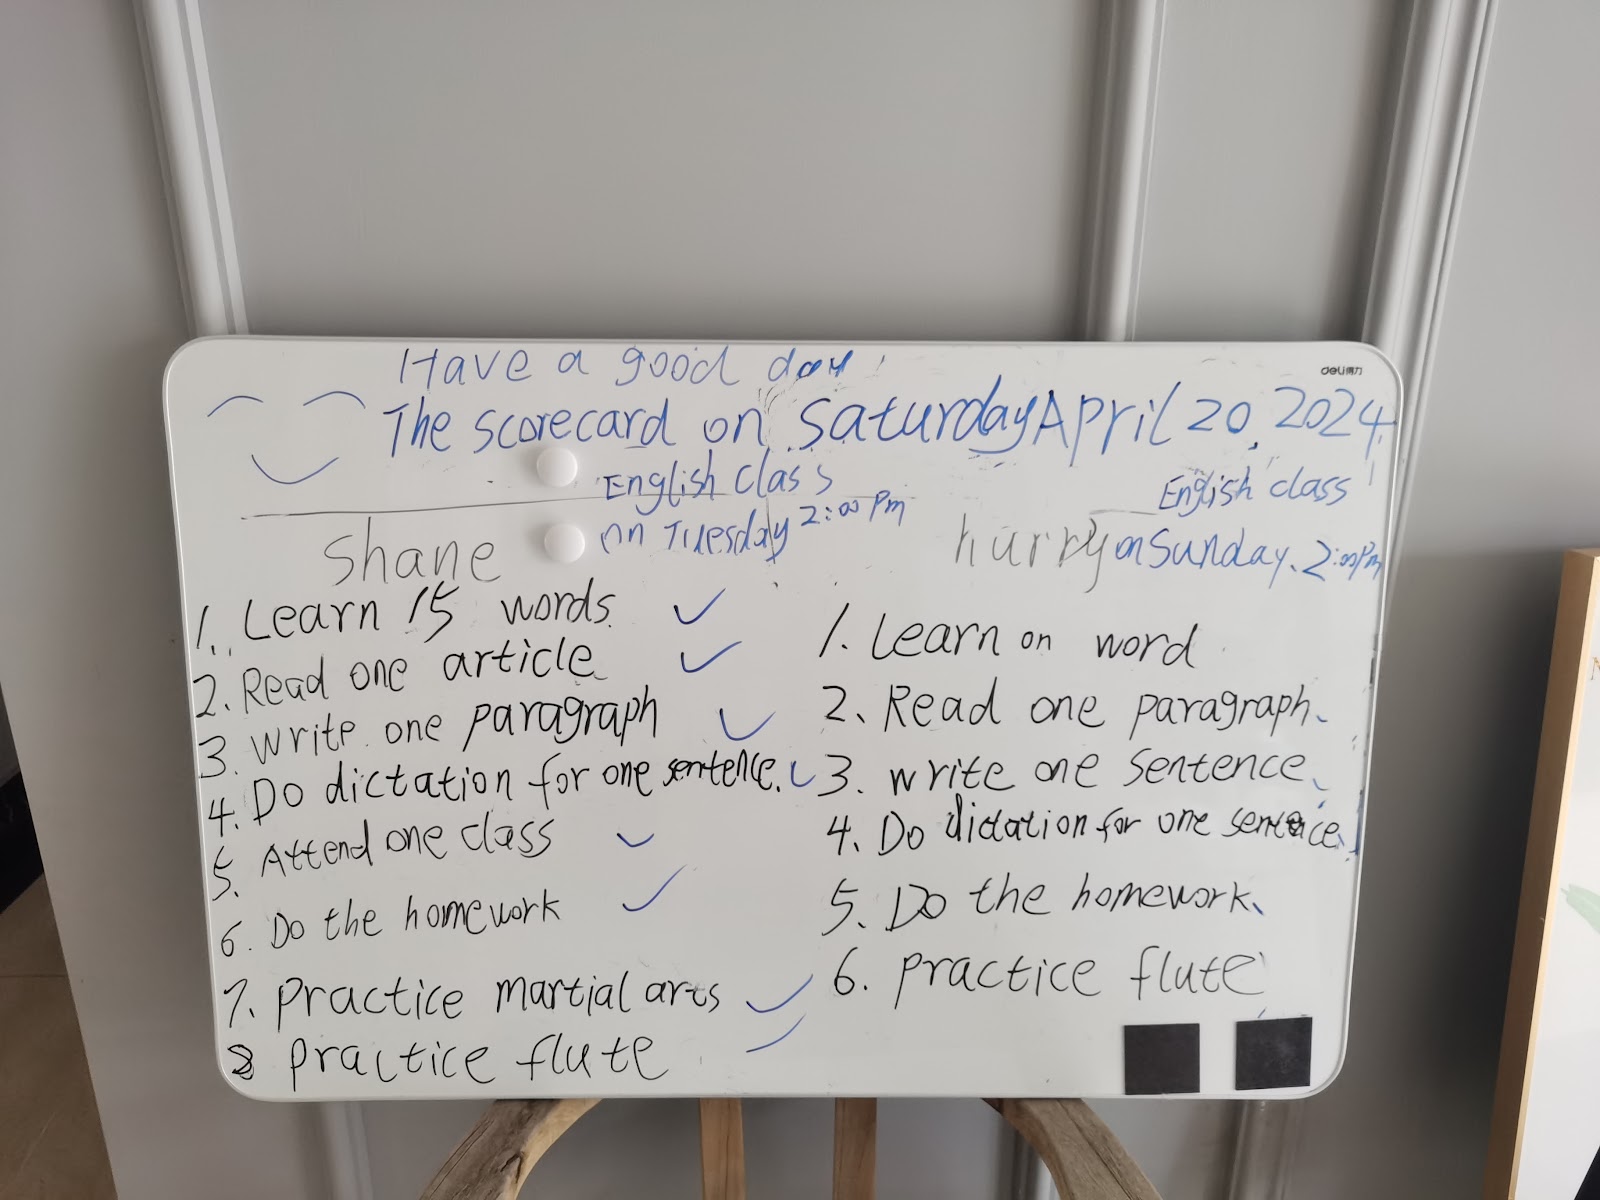 Have a good day!
deli得力
The scorecard on Saturday April 20, 2024.
English class
on Tuesday 2:00 Pm
English class
on Sunday. 2:00Pm
Shane
hurry
1. Learn 15 words.
2. Read one article
3. write one paragraph
4. Do dictation for one sentence.
5. Attend one class
6. Do the homework
7. practice martial arts
8 practice flute
1. Learn on word
2. Read one paragraph.
3. write one sentence.
4. Do dictation for one sentence.
5. Do the homework.
6. practice flute